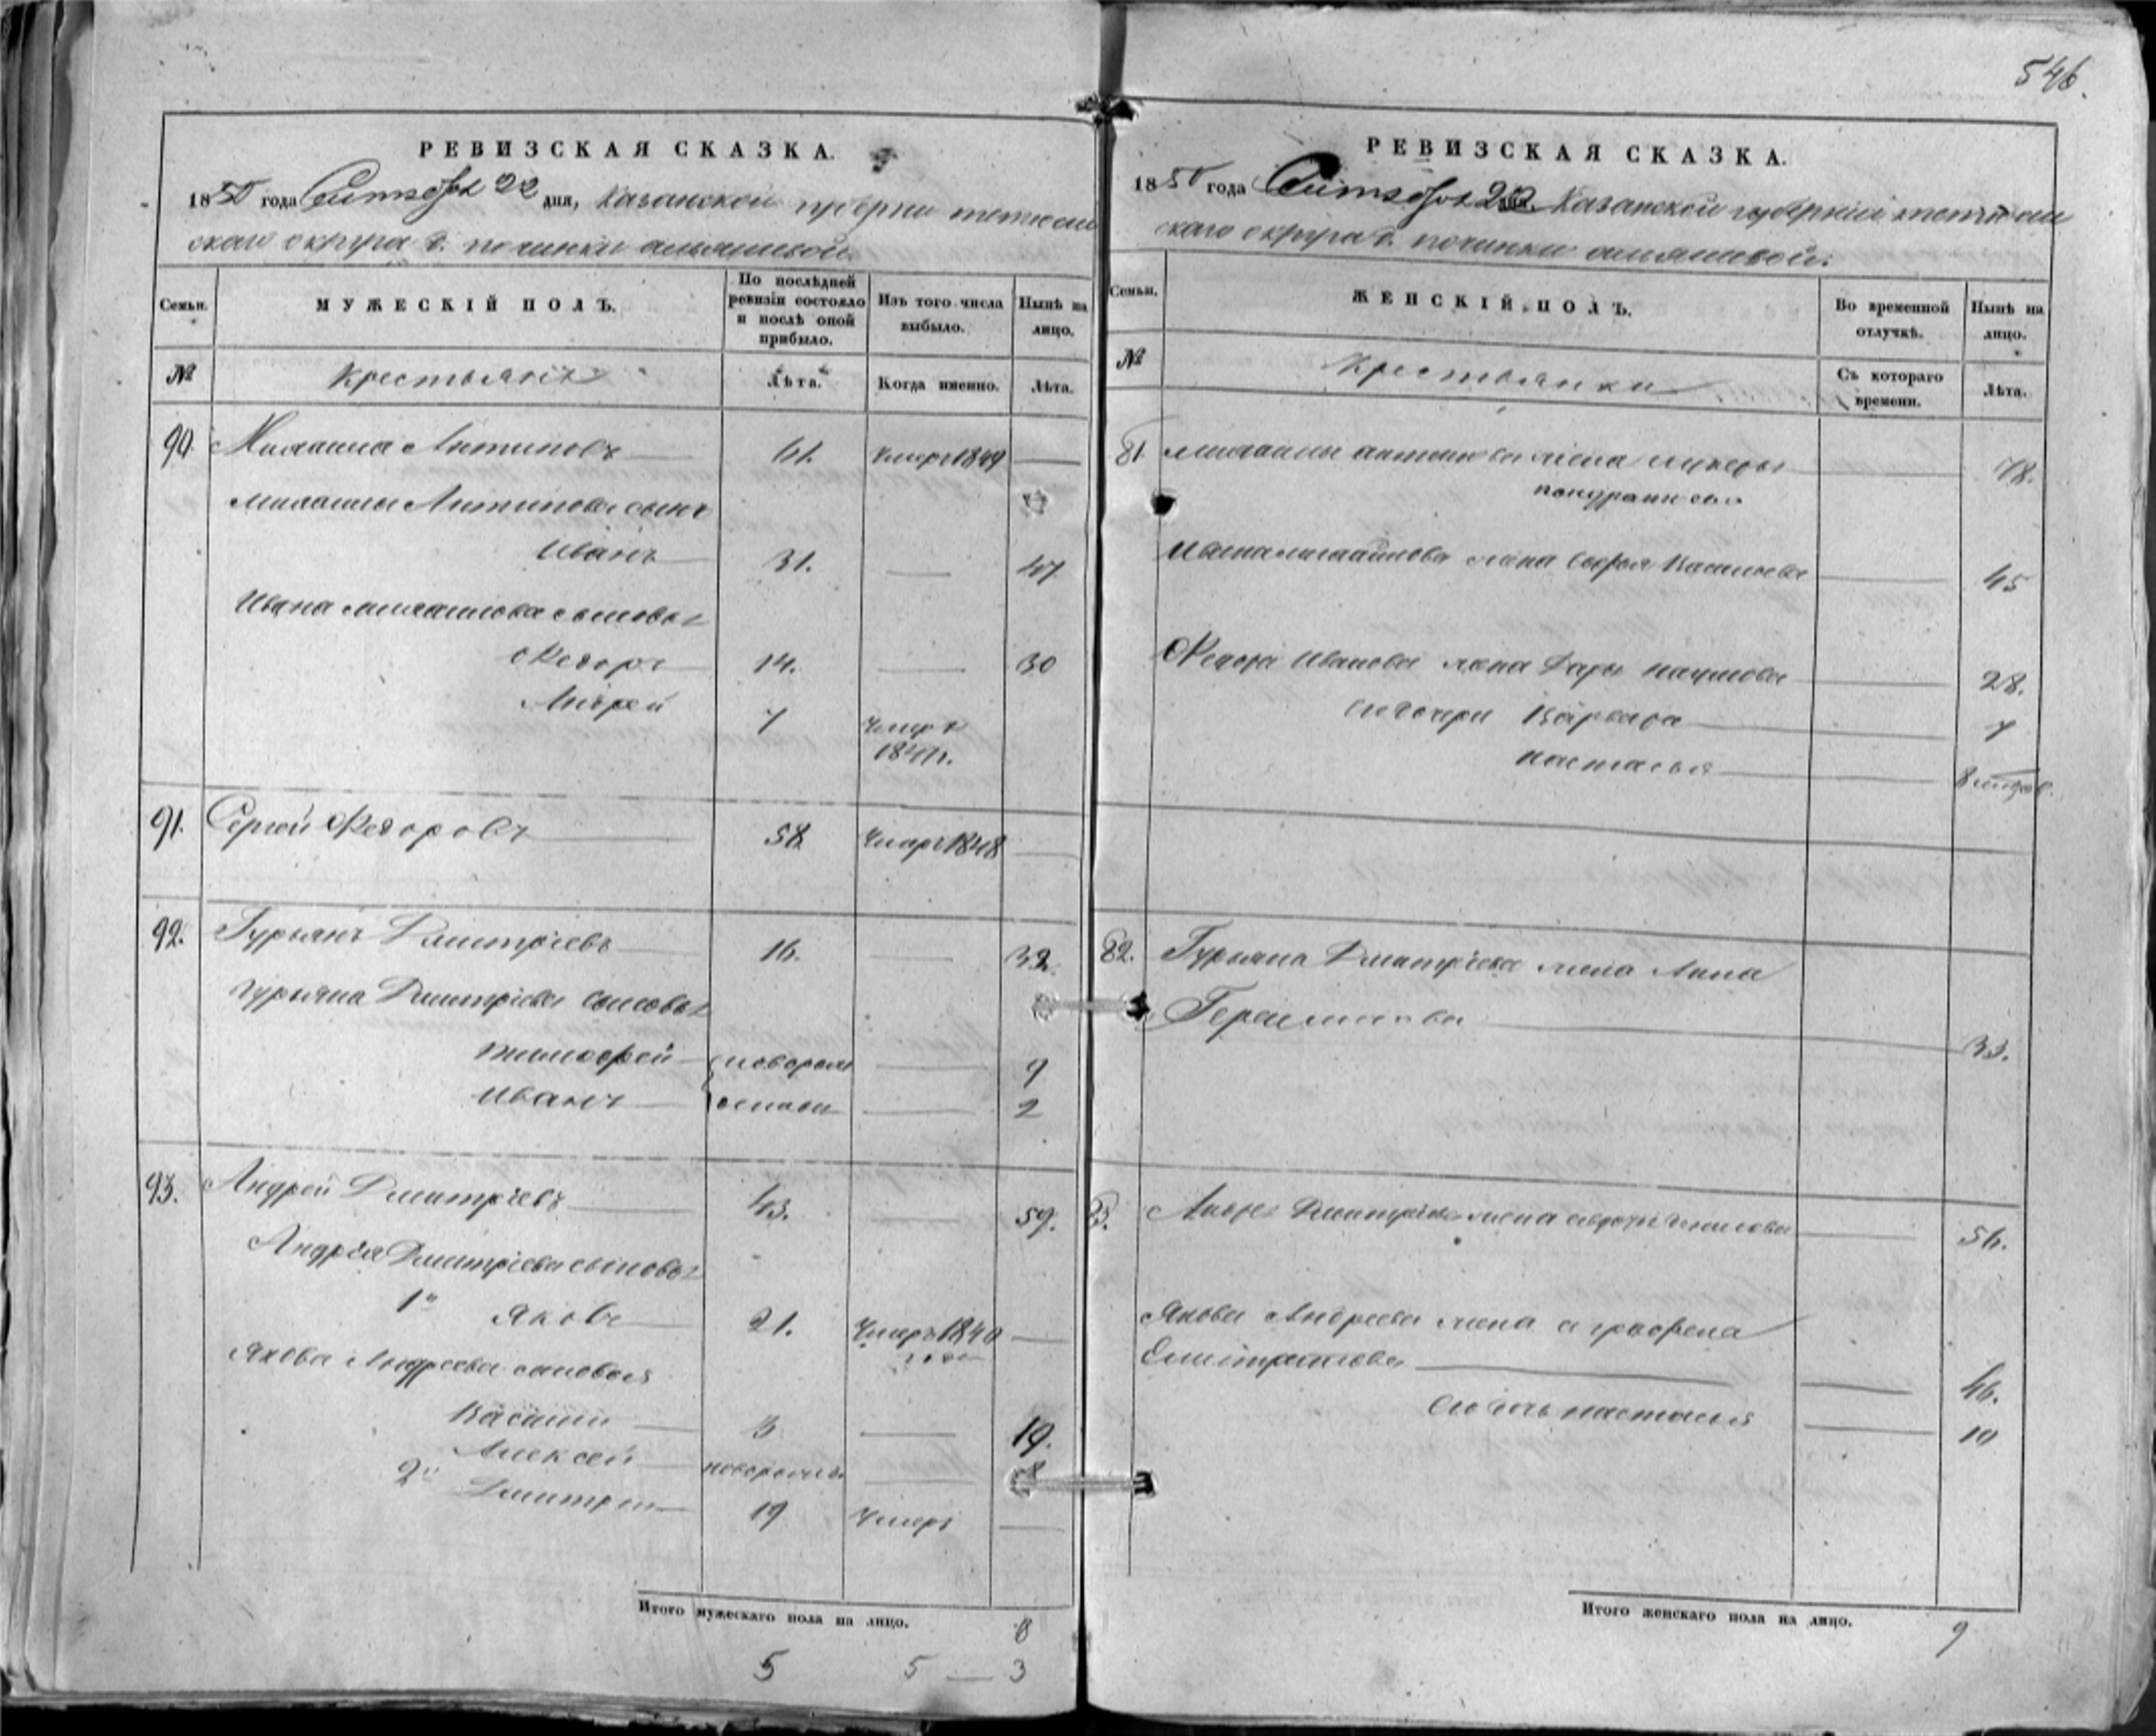 546.
РЕВИЗСКАЯ СКАЗКА.
1850 года Сентября 22 дня, Казанской губернии тетюш
скаго округа д. починки
Семьи.
МУЖЕСКІЙ ПОЛЪ.
По послѣдней ревизіи состояло и послѣ оной прибыло.
Изъ того числа выбыло.
Нынѣ на лицо.
№
Крестьяне
Лѣта.
Когда именно.
Лѣта.
90. Антиповъ 61. умеръ 1849
Антипова сынъ
Иванъ 31. 47
Ивана сыновья
Ѳедоръ 14. 30
Андрей 7 умеръ
91. Сергей Ѳедоровъ 58 Умеръ 1848
92. Гурьянъ Дмитріевъ 16. 32.
гурьяна Дмитріева сыновья
тимофей новорож 9
Иванъ 2
93. Андрей Дмитріевъ 43. 59.
Андрея Дмитріева сыновья
1й Яковъ 21. Умеръ 1840
года
Якова Андреева сыновья
Василий 3 19.
Алексей новорожд. 8
2й Дмитрий 19 Умеръ
Итого мужескаго пола на лицо. 8
5 5 — 3
РЕВИЗСКАЯ СКАЗКА.
1850 года Сентября 22 дня, Казанской губерніи тетюш
скаго округа д. починки
Семьи.
ЖЕНСКІЙ ПОЛЪ.
Во временной отлучкѣ.
Нынѣ на лицо.
№
Крестьянки
Съ котораго времени.
Лѣта.
81. антипова жена лукерья 78.
кондратьева
Ивана жена Софья Васильева 45
Ѳедора Иванова жена Дарья наумова 28.
ихъ дочери Варвара 7
настасья
82. Гурьяна Дмитріева жена Анна
Герасимова 33.
83. Андрея Дмитріева жена авдотья 56.
Якова Андреева жена аграфена
Елистратова 46.
ихъ дочь настасья 10
Итого женскаго пола на лицо. 9